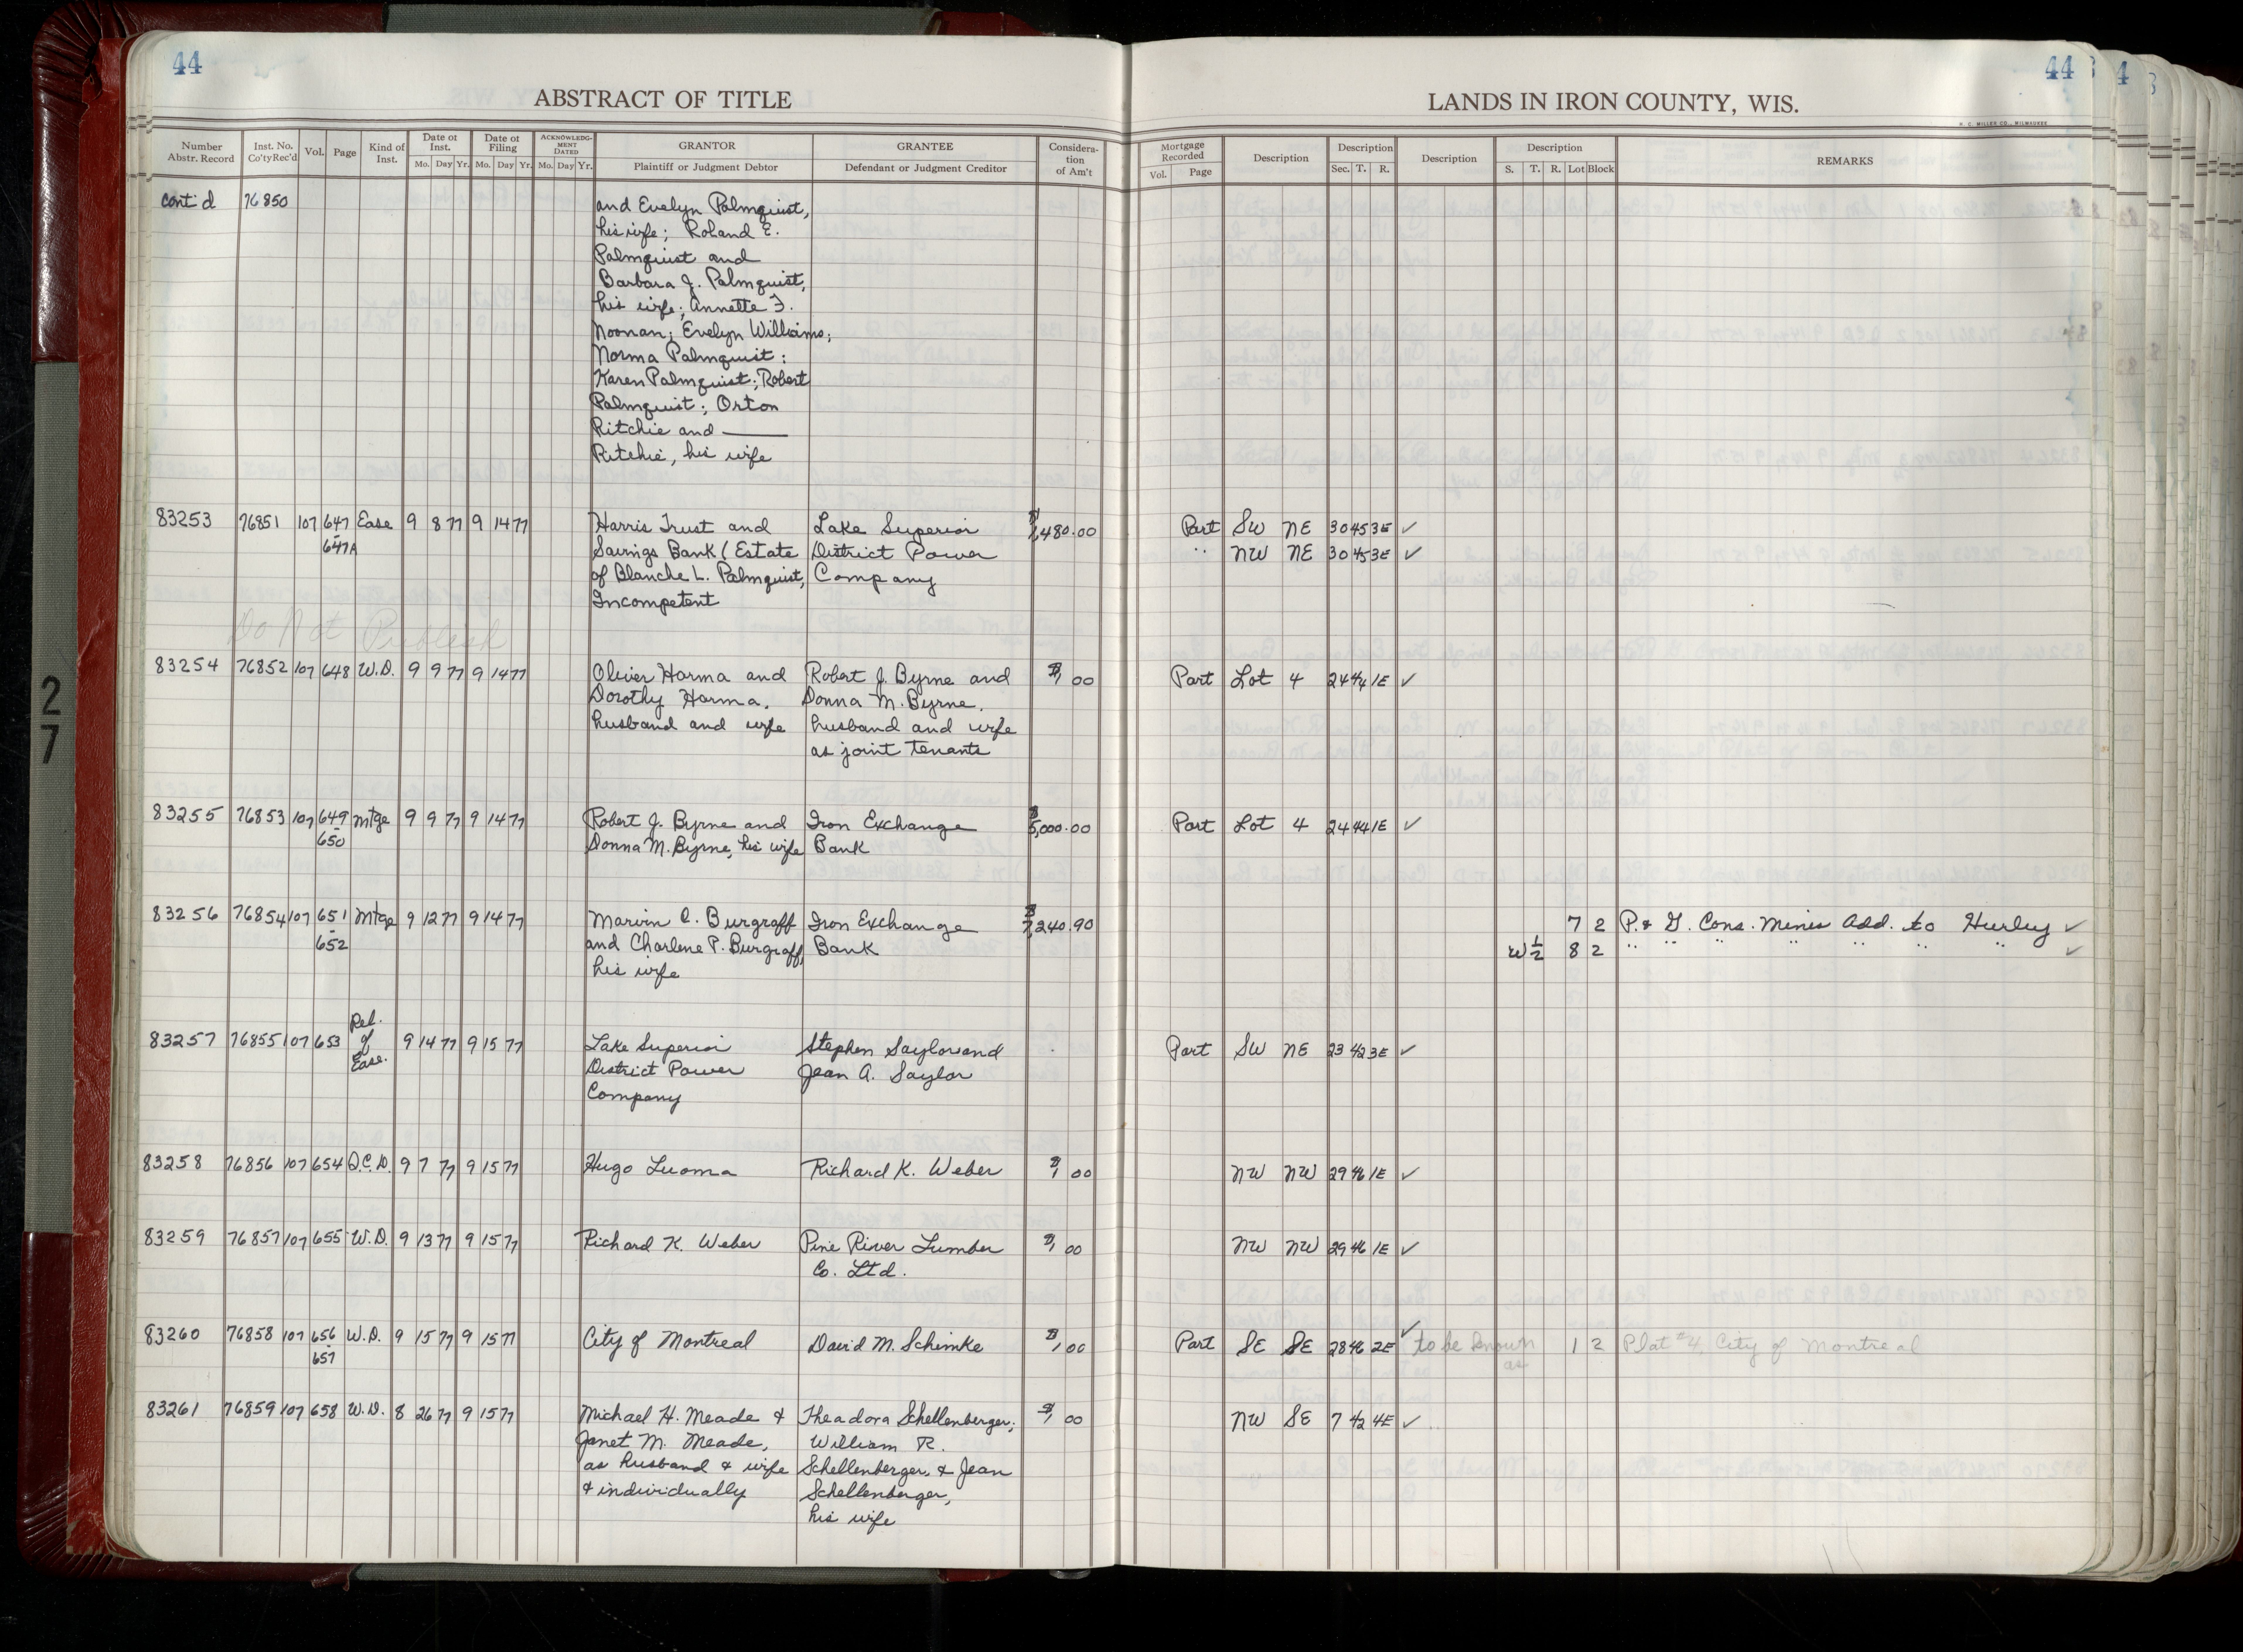 44
44
4
ABSTRACT OF TITLE
LANDS IN IRON COUNTY, WIS.
H. C. MILLER CO., MILWAUKEE
Number Abstr. Record | Inst. No. Co'ty Rec'd | Vol. | Page | Kind of Inst. | Date of Inst. Mo. Day Yr. | Date of Filing Mo. Day Yr. | ACKNOWLEDGMENT DATED Mo. Day Yr. | GRANTOR Plaintiff or Judgment Debtor | GRANTEE Defendant or Judgment Creditor | Consideration of Am't | Mortgage Recorded Vol. Page | Description | Description Sec. T. R. | Description | Description S. T. R. Lot Block | REMARKS
cont'd 76850 and Evelyn Palmquist,
his wife; Roland E.
Palmquist and
Barbara J. Palmquist,
his wife; Annette F.
Noonan; Evelyn Williams;
Norma Palmquist;
Karen Palmquist; Robert
Palmquist; Orton
Ritchie and ———
Ritchie, his wife
83253 76851 107 647 Ease 9 8 77 9 14 77 Harris Trust and Lake Superior $1,480.00 Part SW NE 30 45 3E ✓
647A Savings Bank (Estate District Power " NW NE 30 45 3E ✓
of Blanche L. Palmquist, Company
Incompetent
Do Not Publish
83254 76852 107 648 W.D. 9 9 77 9 14 77 Oliver Harma and Robert J. Byrne and $1 00 Part Lot 4 24 44 1E ✓
Dorothy Harma, Donna M. Byrne,
husband and wife husband and wife
as joint tenants
83255 76853 107 649 Mtge 9 9 77 9 14 77 Robert J. Byrne and Iron Exchange $5,000.00 Part Lot 4 24 44 1E ✓
- 650 Donna M. Byrne, his wife Bank
83256 76854 107 651 Mtge 9 12 77 9 14 77 Marvin C. Burgraff Iron Exchange $7,240.90 7 2 P. & G. Cons. Mines Add. to Hurley ✓
- 652 and Charlene P. Burgraff, Bank W½ 8 2 " " " " " " " ✓
his wife
83257 76855 107 653 Rel. of Ease. 9 14 77 9 15 77 Lake Superior Stephen Saylor and Part SW NE 23 42 3E ✓
District Power Jean A. Saylor
Company
83258 76856 107 654 Q.C.D. 9 7 77 9 15 77 Hugo Luoma Richard K. Weber $1 00 NW NW 29 46 1E ✓
83259 76857 107 655 W.D. 9 13 77 9 15 77 Richard K. Weber Pine River Lumber $1 00 NW NW 29 46 1E ✓
Co. Ltd.
83260 76858 107 656 W.D. 9 15 77 9 15 77 City of Montreal David M. Schimke $1 00 Part SE SE 28 46 2E ✓ to be known as 1 2 Plat #4, City of Montreal
- 657
83261 76859 107 658 W.D. 8 26 77 9 15 77 Michael H. Meade & Theadora Schellenberger; $1 00 NW SE 7 42 4E ✓
Janet M. Meade, William R.
as husband & wife Schellenberger, & Jean
& individually Schellenberger,
his wife
27